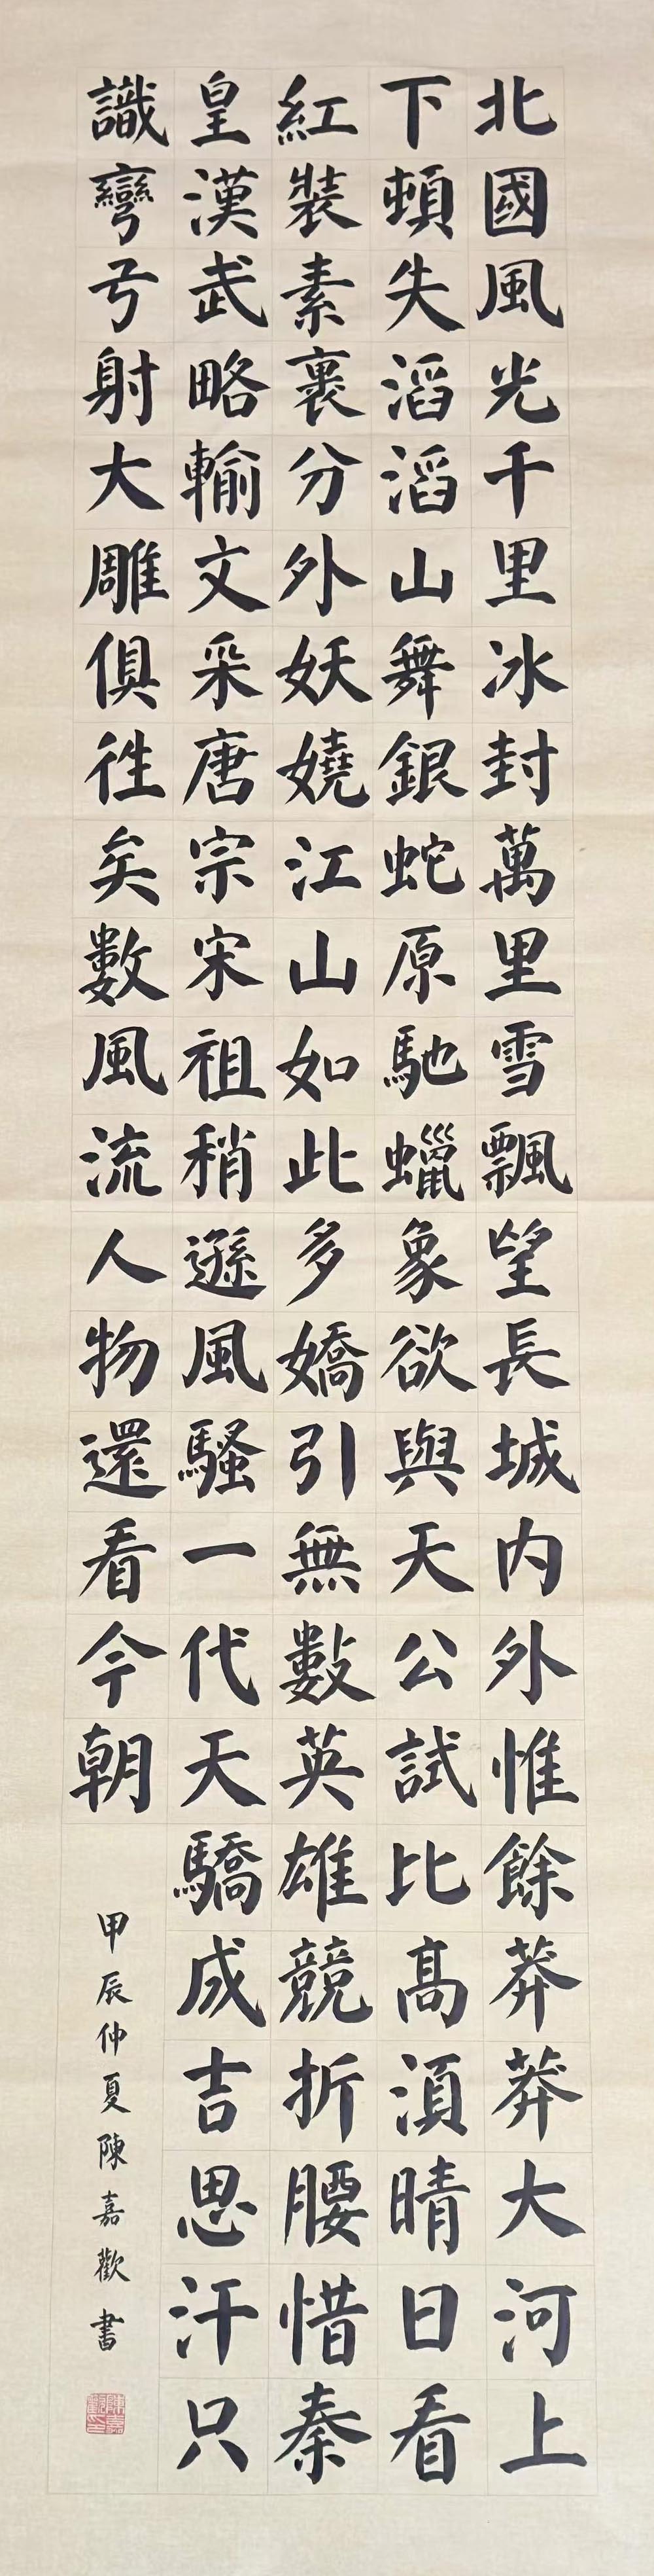 北國風光千里冰封萬里雪飄望長城内外惟餘莽莽大河上
下頓失滔滔山舞銀蛇原馳蠟象欲與天公試比高須晴日看
紅裝素裹分外妖嬈江山如此多嬌引無數英雄競折腰惜秦
皇漢武略輸文采唐宗宋祖稍遜風騷一代天驕成吉思汗只
識彎弓射大雕俱往矣數風流人物還看今朝
甲辰仲夏陳嘉歡書
陳嘉
歡印